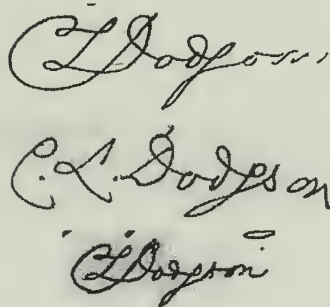 C L Dodgson
C. L. Dodgson
C L Dodgson